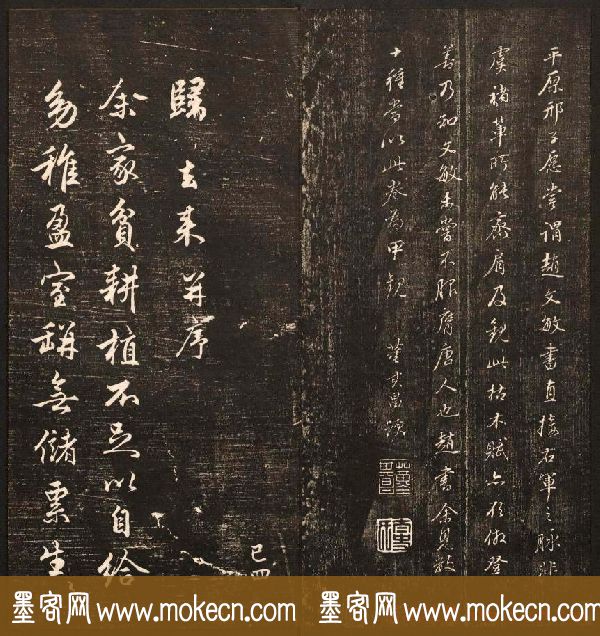 平原邢子愿常謂趙文敏書直接右軍之脈非
虞褚輩所能窺及觀此枯木賦亦欲俶登
善乃知文敏未嘗不服膺唐人也趙書余見數
十種當以此卷為甲觀 董其昌跋
歸去来并序
余家貧耕植不足以自給
幼稚盈室缾無儲粟生
墨客网 www.mokecn.com 墨客网 www.mokecn.com